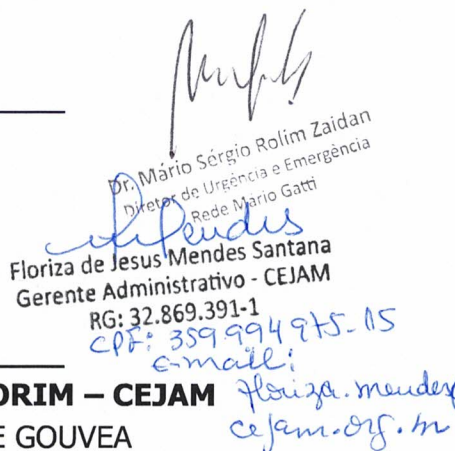 Dr. Mário Sérgio Rolim Zaidan
Diretor de Urgência e Emergência
Rede Mário Gatti
Floriza de Jesus Mendes Santana
Gerente Administrativo - CEJAM
RG: 32.869.391-1
CPF: 359.994.975-15
e-mail:
floriza.mendes
cejam.org.br
ORIM – CEJAM
E GOUVEA